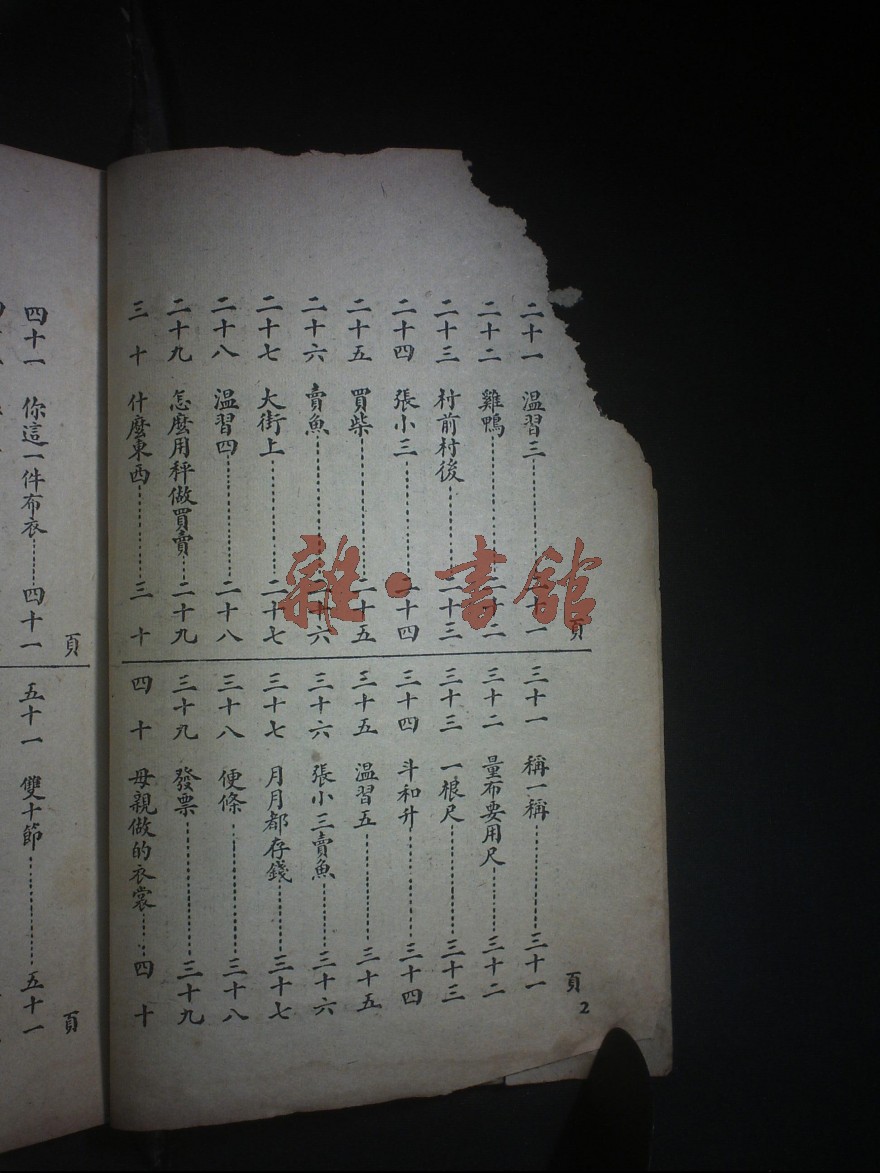 頁
二十一 温習三………二十一
二十二 雞鴨………二十二
二十三 村前村後………二十三
二十四 張小三………二十四
二十五 買柴………二十五
二十六 賣魚………二十六
二十七 大街上………二十七
二十八 温習四………二十八
二十九 怎麼用秤做買賣…二十九
三十 什麼東西………三十
頁
三十一 稱一稱………三十一
三十二 量布要用尺………三十二
三十三 一根尺………三十三
三十四 斗和升………三十四
三十五 温習五………三十五
三十六 張小三賣魚………三十六
三十七 月月都存錢………三十七
三十八 便條………三十八
三十九 發票………三十九
四十 母親做的衣裳……四十
2
頁
四十一 你這一件布衣……四十一
頁
五十一 雙十節………五十一
雜·書館